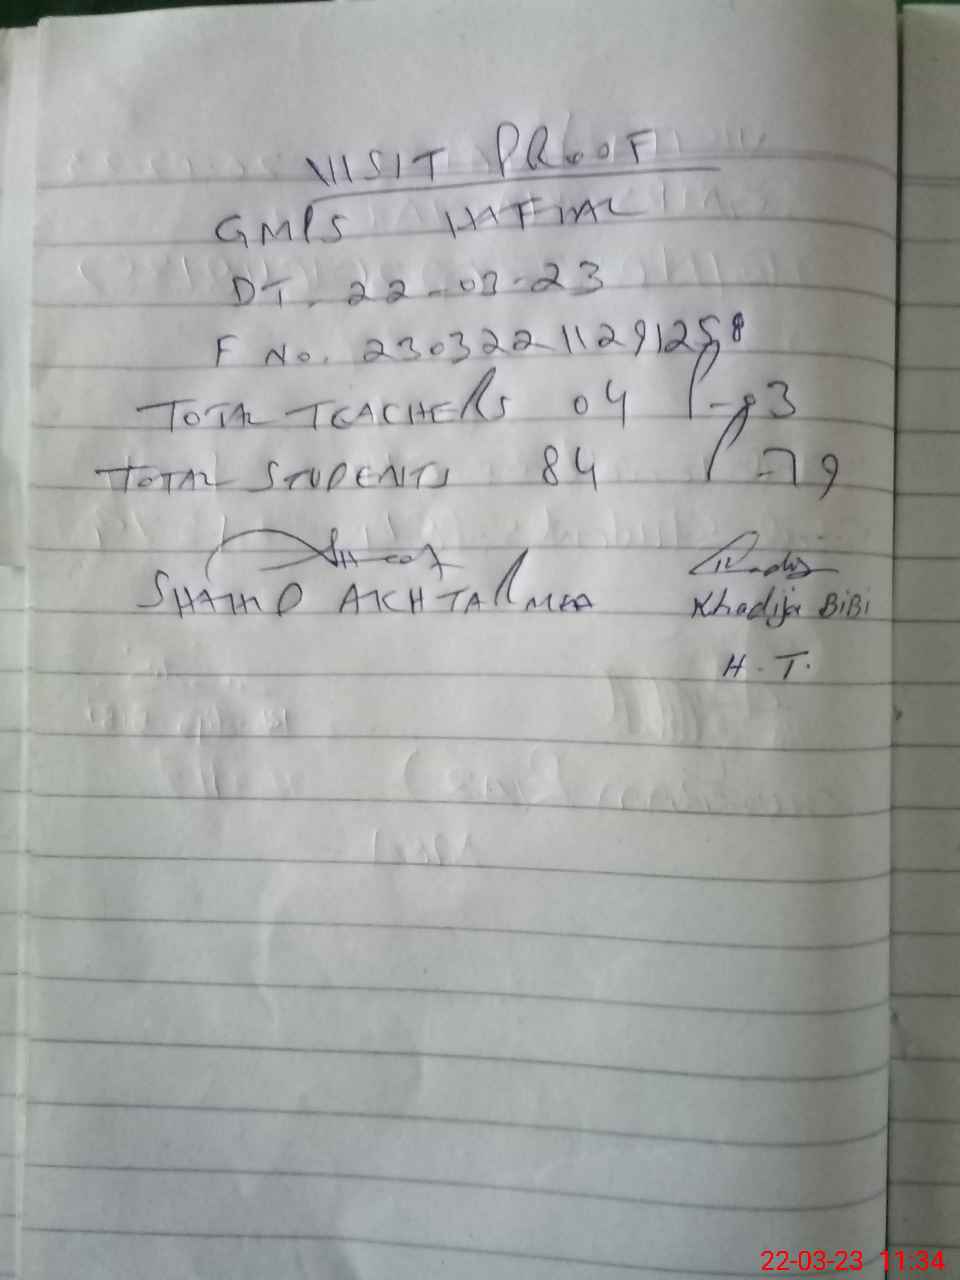 VISIT PROOF
GMPS HAFIZAL
DT. 22-03-23
F No. 23032211291258
TOTAL TEACHERS 04 P-03
TOTAL STUDENTS 84 P-79
SHAHID AKHTAR MEA
Khadija BiBi
H.T.
22-03-23 11:34